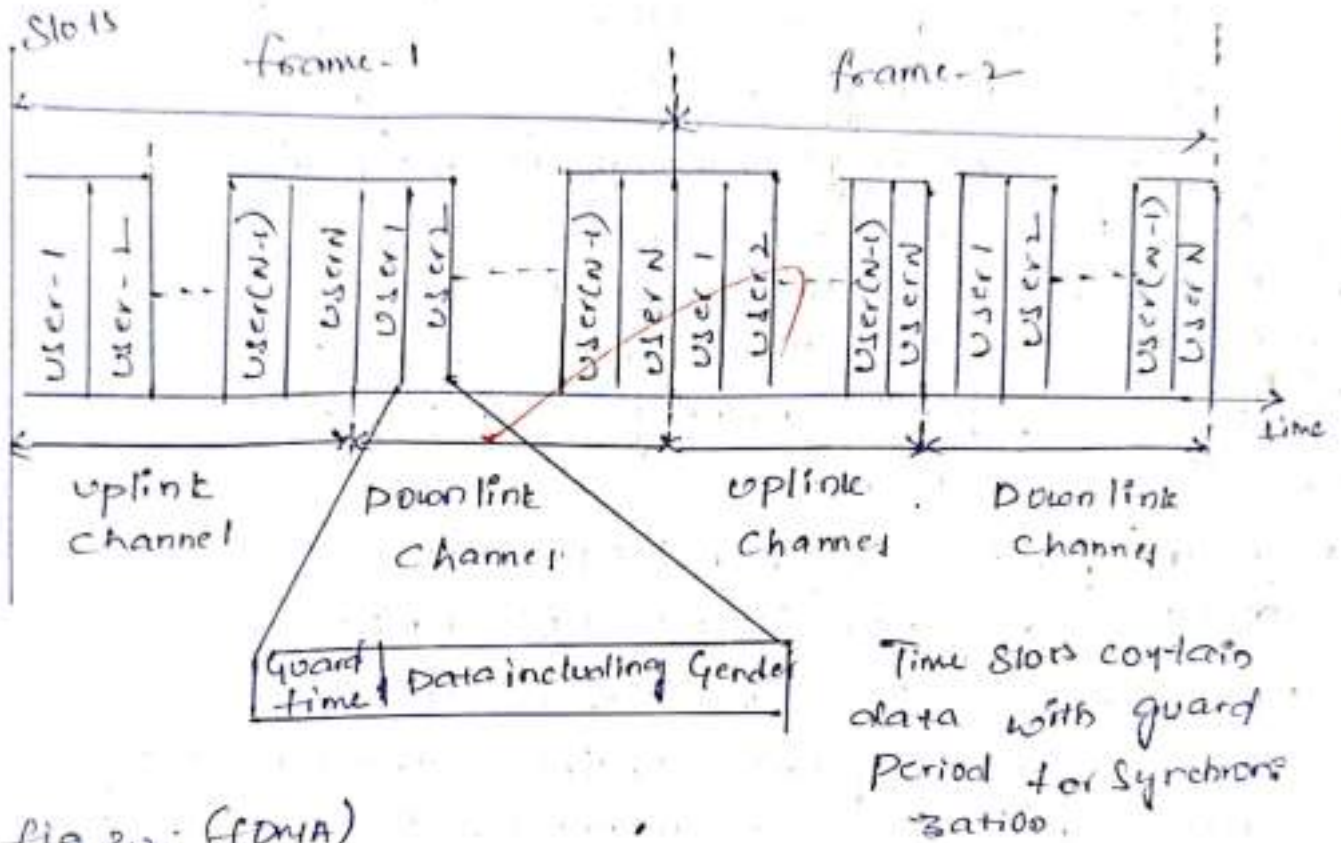 Slots
frame-1
frame-2
User-1
User-2
User(N-1)
User N
User 1
User 2
User(N-1)
User N
User 1
User 2
User(N-1)
User N
User 1
User 2
User(N-1)
User N
time
uplink
Channel
Downlink
Channel
uplink
Channel
Downlink
Channel
Guard
time
Data including Gender
Time Slots contain
data with guard
Period for Synchroni
zation.
fig